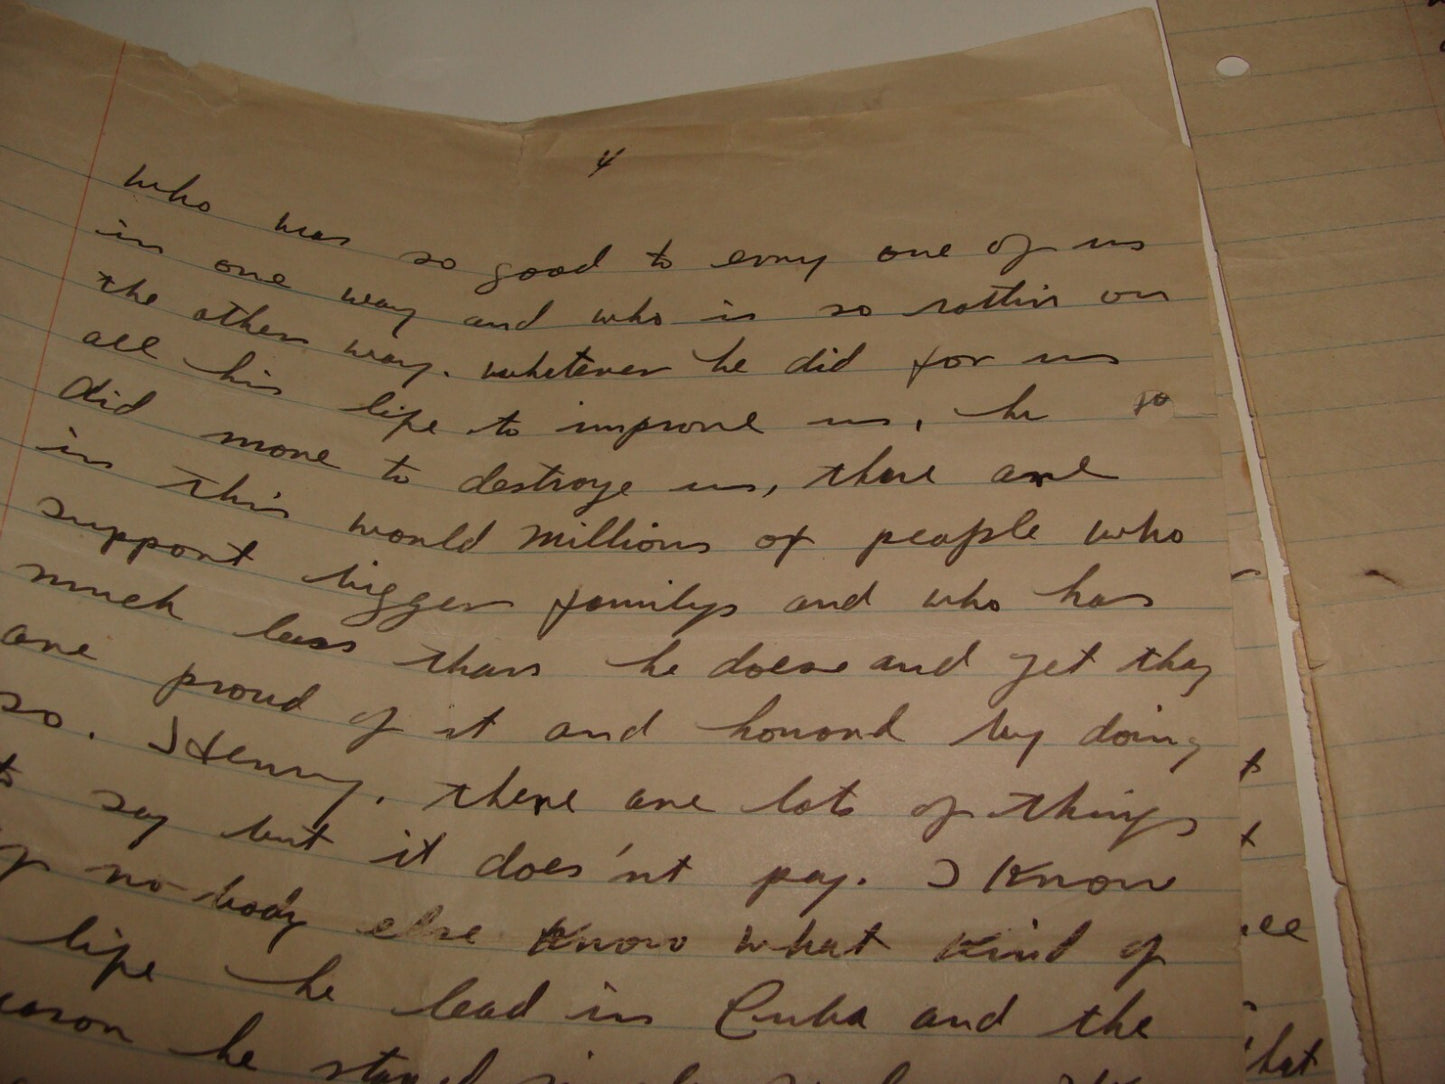 4
who was so good to evry one of us
in one way and who is so rottin on
the other way. whatever he did for us
all his life to improve us, he
did more to destroye us, there are
in this world millions of people who
support bigger familys and who has
much less than he does and yet they
are proud of it and honord by doing
so. Henry, there are lots of things
to say but it does'nt pay. I know
no-body else know what kind of
life he lead in Cuba and the
he stayed